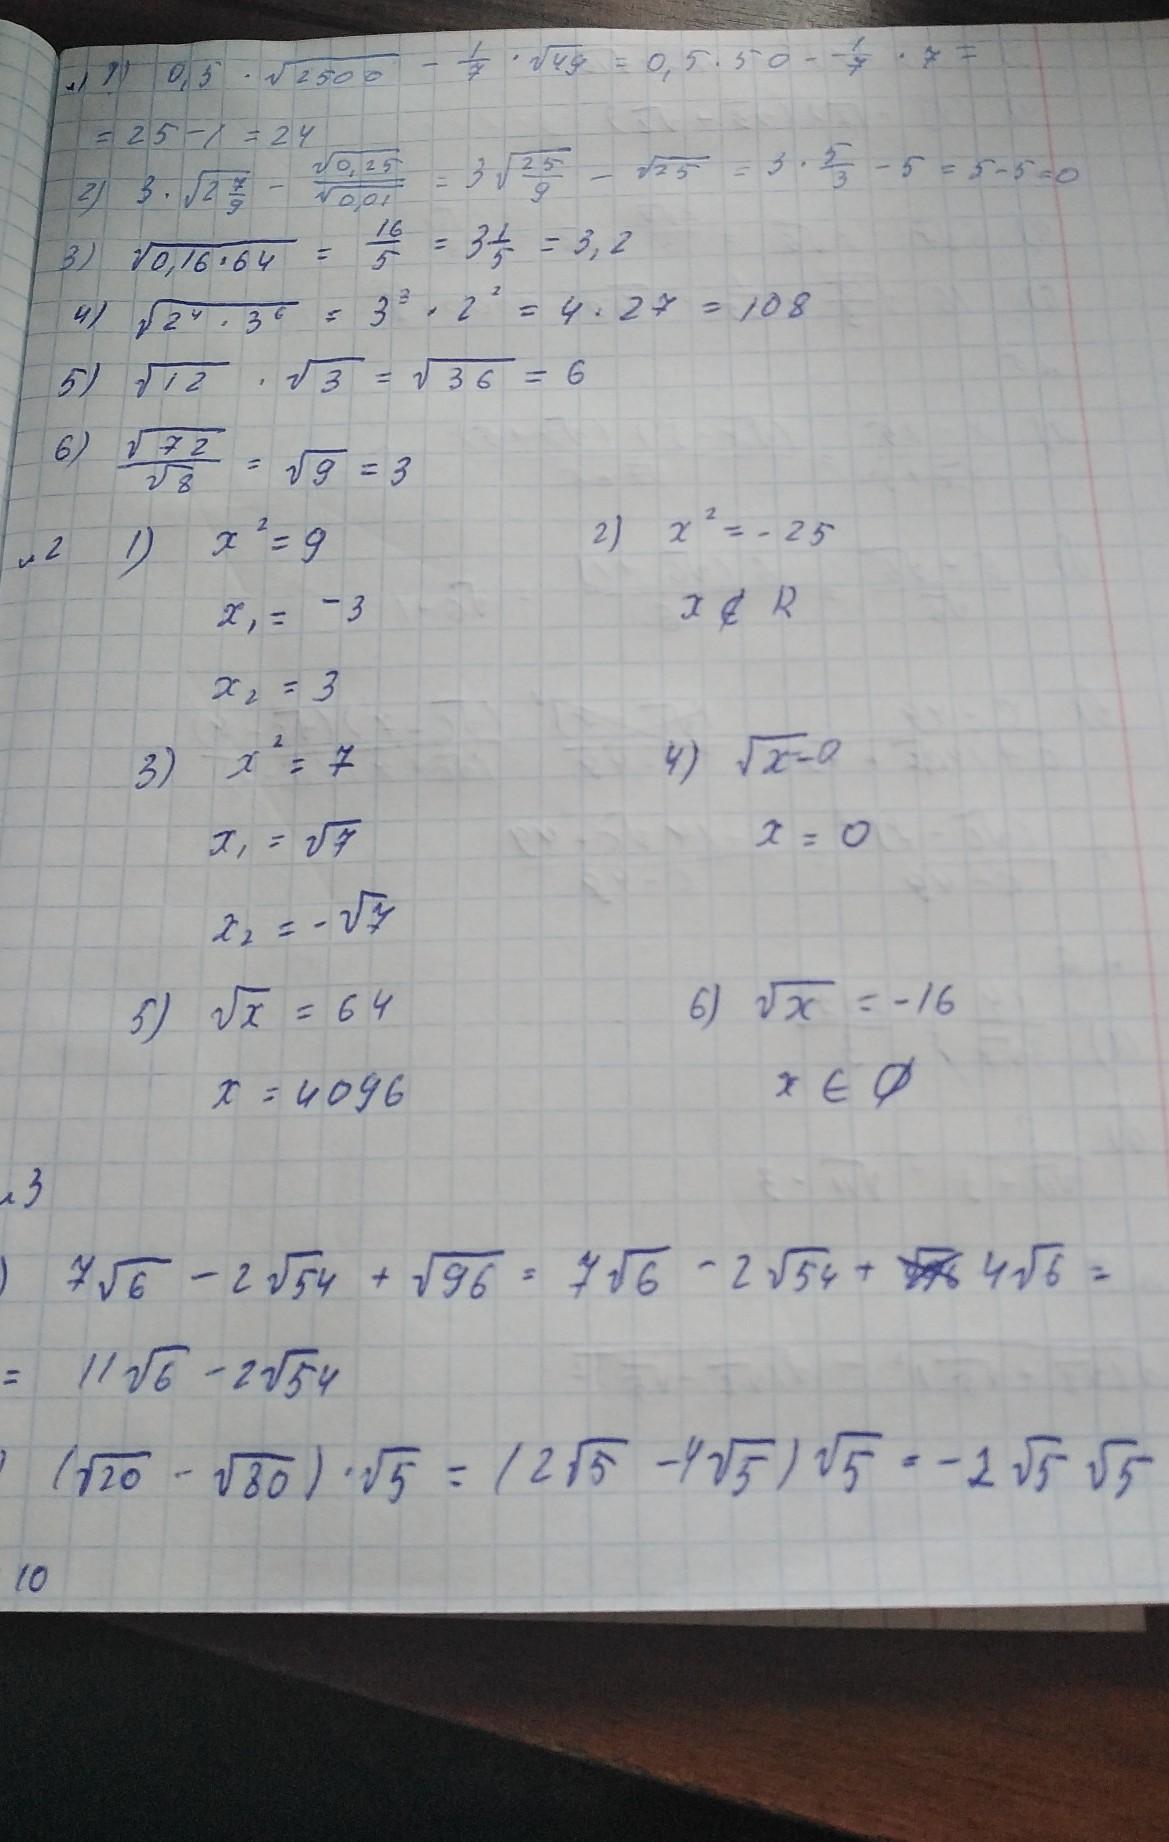 1) 0,5 · √2500 - 1/7 · √49 = 0,5 · 50 - 1/7 · 7 =
= 25 - 1 = 24
2) 3 · √2 7/9 - √0,25/√0,01 = 3√25/9 - √25 = 3 · 5/3 - 5 = 5-5=0
3) √0,16·64 = 16/5 = 3 1/5 = 3,2
4) √2⁴ · 3⁶ = 3³ · 2² = 4 · 27 = 108
5) √12 · √3 = √36 = 6
6) √72/√8 = √9 = 3
№2 1) x² = 9 2) x² = -25
x₁ = -3 x ∉ R
x₂ = 3
3) x² = 7 4) √x=0
x₁ = √7 x = 0
x₂ = -√7
5) √x = 64 6) √x = -16
x = 4096 x ∈ ∅
3
) 7√6 - 2√54 + √96 = 7√6 - 2√54 + 4√6 =
= 11√6 - 2√54
) (√20 - √80) · √5 = (2√5 - 4√5) √5 = -2√5 √5
10